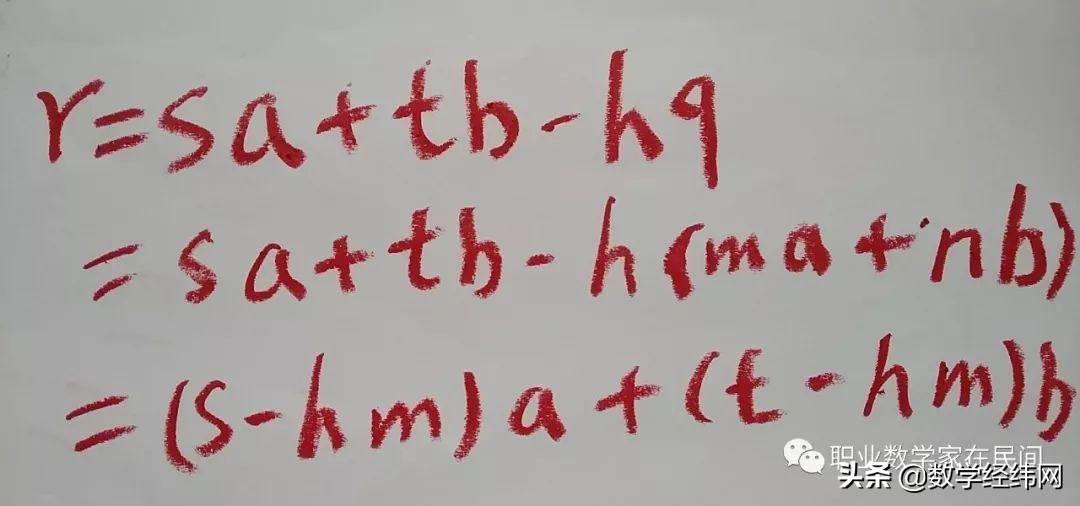 r=sa+tb-hq
=sa+tb-h(ma+nb)
=(s-hm)a+(t-hm)b
职业数学家在民间
头条 @数学经纬网